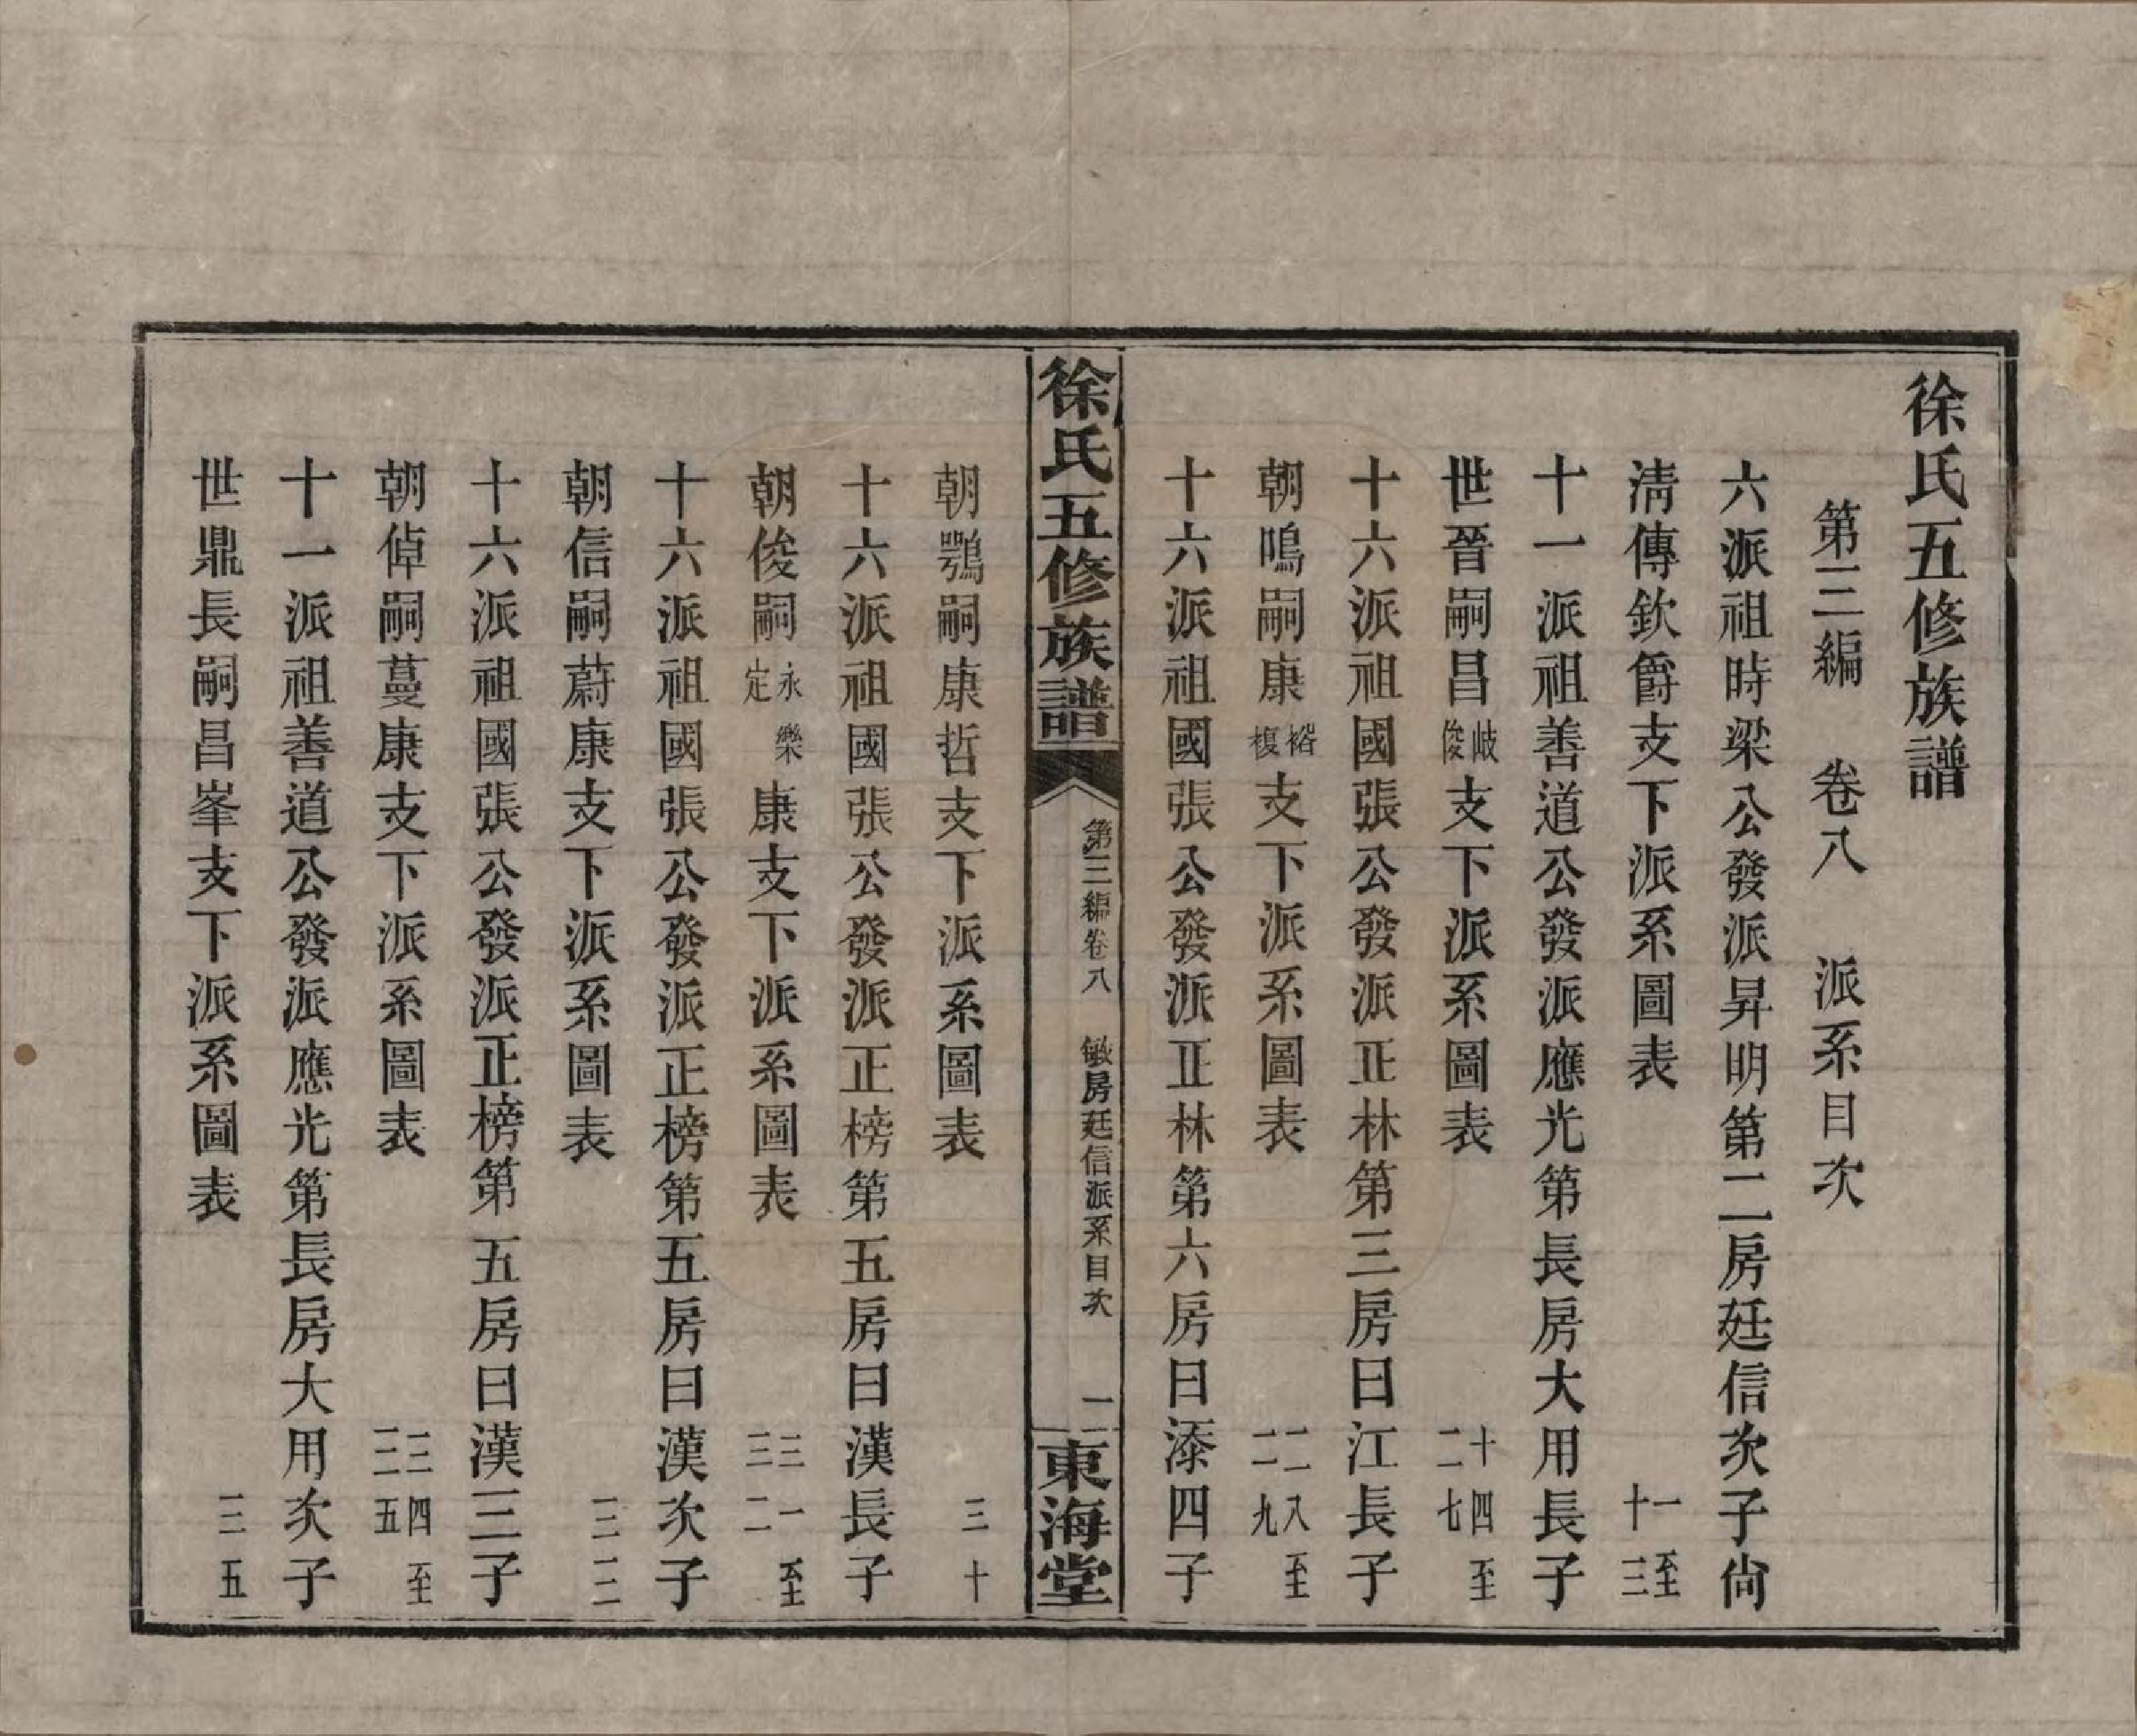 徐氏五修族譜
第三編　卷八　派系目次
六派祖時梁公發派昇明第二房廷信次子尙
清傳欽爵支下派系圖表　一至十三
十一派祖善道公發派應光第長房大用長子
世晉嗣昌岐俊支下派系圖表　十四至二七
十六派祖國張公發派正林第三房日江長子
朝鳴嗣康裕複支下派系圖表　二八至二九
十六派祖國張公發派正林第六房日添四子
徐氏五修族譜　第三編卷八　敏房廷信派系目次　一　東海堂
朝鶚嗣康哲支下派系圖表　三十
十六派祖國張公發派正榜第五房日漢長子
朝俊嗣永樂定康支下派系圖表　三一至三二
十六派祖國張公發派正榜第五房日漢次子
朝信嗣蔚康支下派系圖表　三三
十六派祖國張公發派正榜第五房日漢三子
朝倬嗣蔓康支下派系圖表　三四至三五
十一派祖善道公發派應光第長房大用次子
世鼎長嗣昌峯支下派系圖表　三五